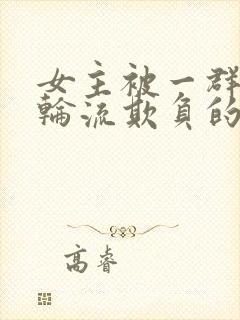 女主被一群
輪流欺負的
高睿